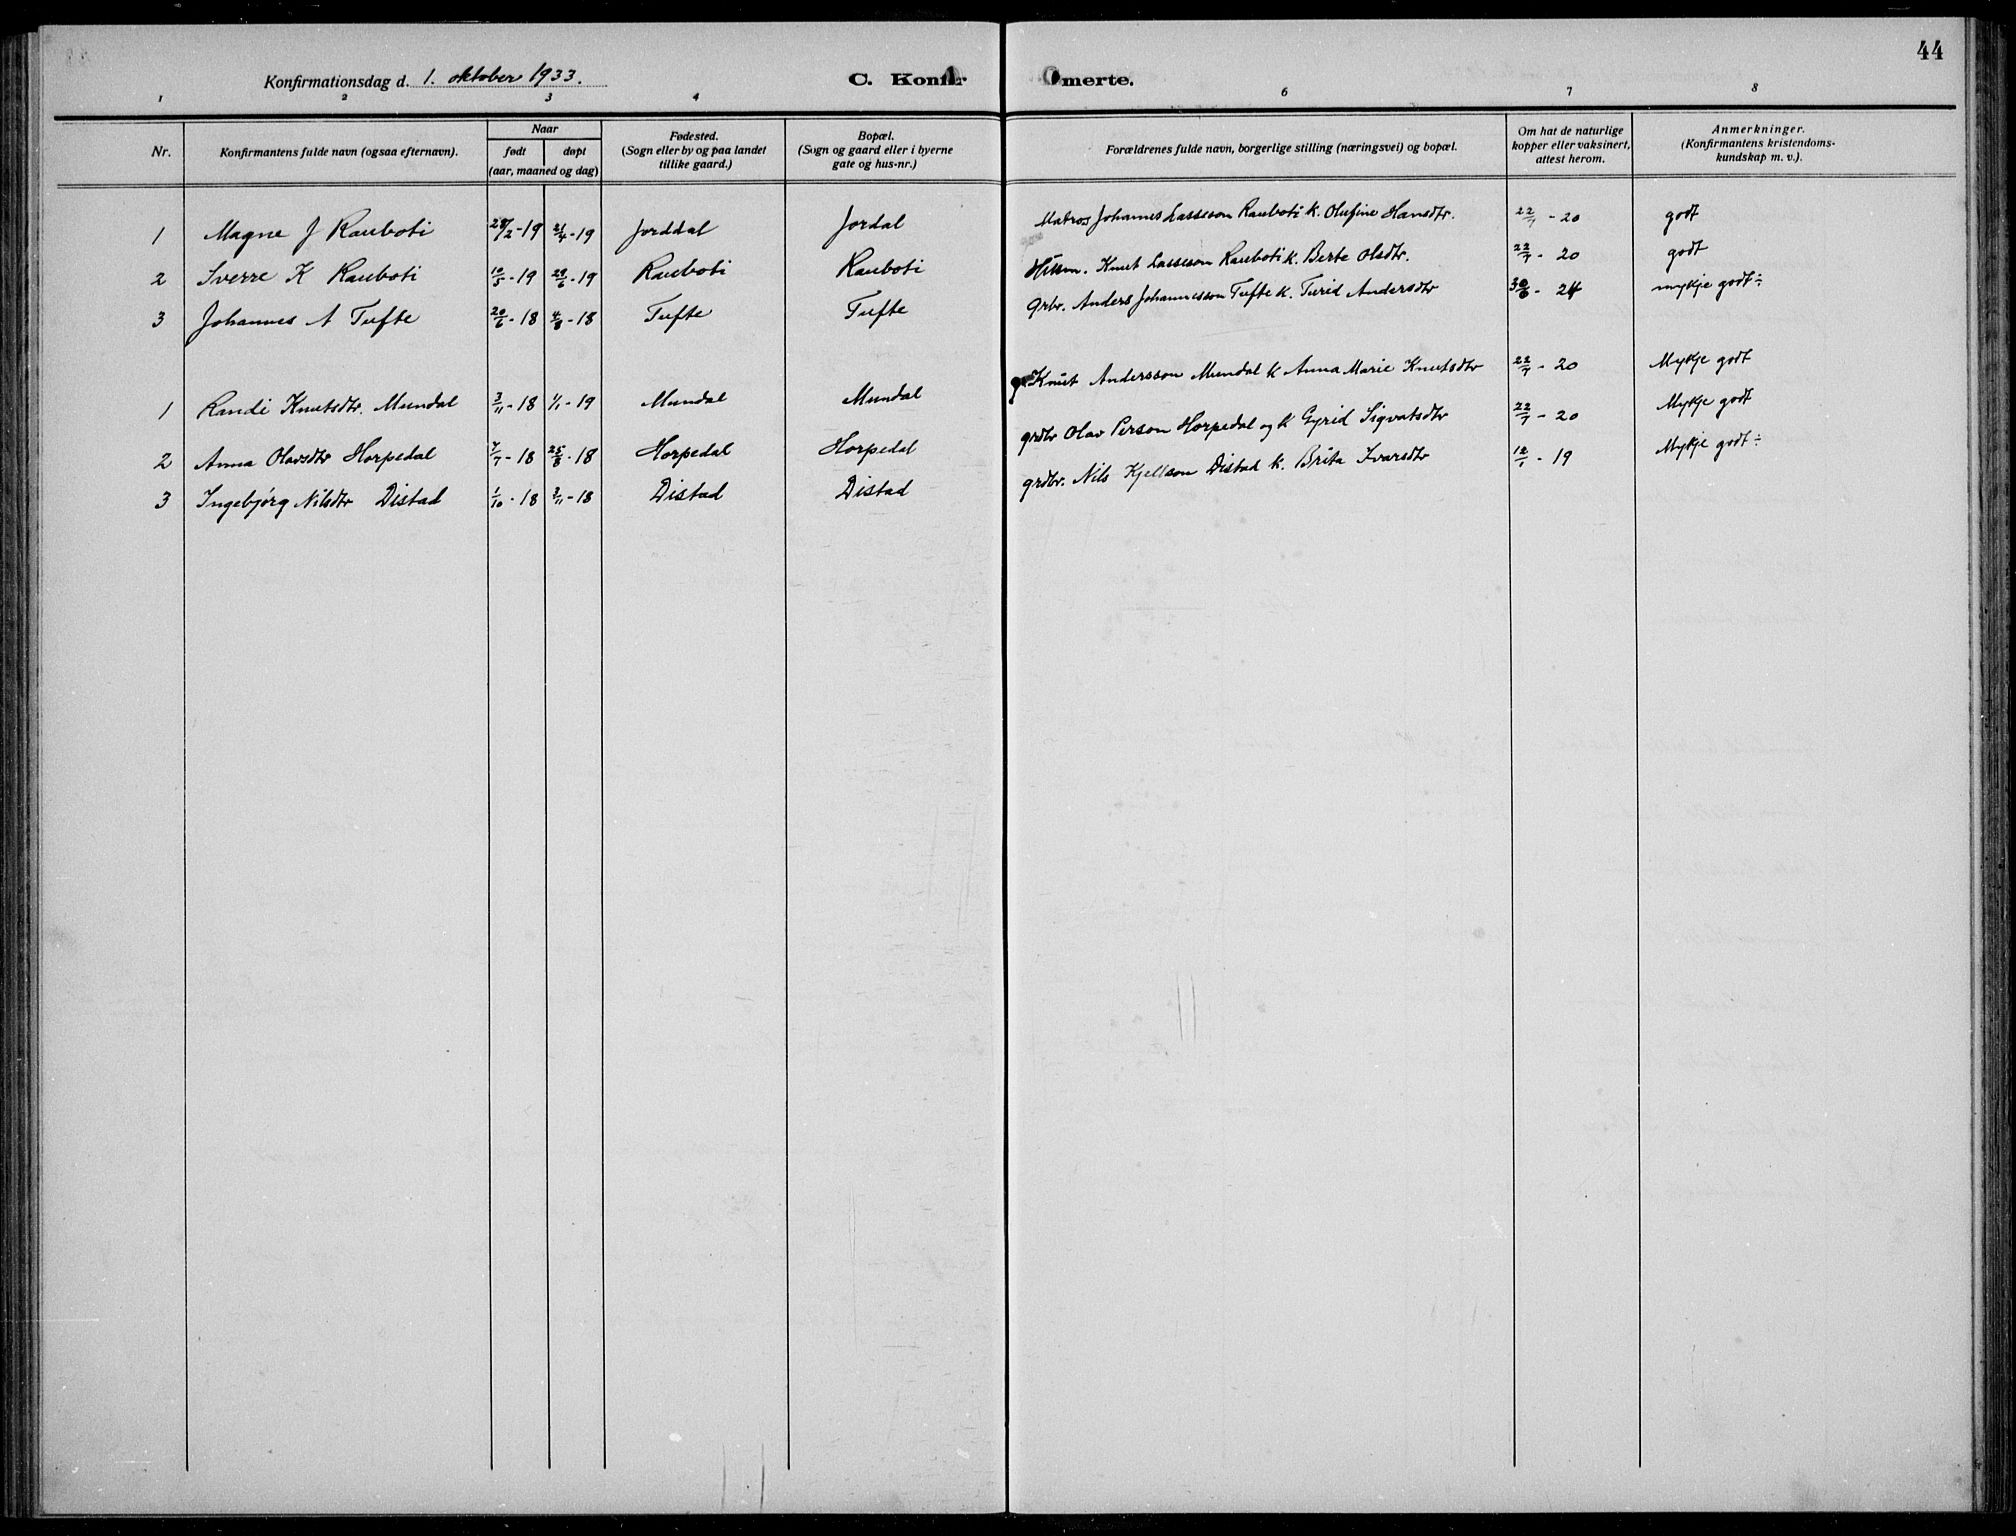 44
Konfirmationsdag d. 1. oktober 1933.
C. Konfir merte.
1 2 3 4 6 7 8
Nr.
Konfirmantens fulde navn (ogsaa efternavn).
Naar
født døpt
(aar, maaned og dag)
Fødested.
(Sogn eller by og paa landet
tillike gaard.)
Bopæl.
(Sogn og gaard eller i byerne
gate og hus-nr.)
Forældrenes fulde navn, borgerlige stilling (næringsvei) og bopæl.
Om hat de naturlige
kopper eller vaksinert,
attest herom.
Anmerkninger.
(Konfirmantens kristendoms-
kundskap m. v.).
1 Magne J Rauboti 28/2-19 21/4-19 Jorddal Jordal Matros Johannes Lasseson Rauboti k. Olufine Hansdtr. 22/7 - 20 godt
2 Sverre K Rauboti 10/5-19 29/6-19 Rauboti Rauboti Husm. Knut Lasseson Rauboti k. Berte Olsdtr. 22/7 - 20 godt
3 Johannes A Tufte 20/6-18 4/8-18 Tufte Tufte Grbr. Anders Johannesson Tufte k. Turid Andersdtr 30/6 - 24 mykje godt ÷
1 Randi Knutsdtr. Mundal 3/11-18 1/1-19 Mundal Mundal Knut Andersson Mundal k Anna Marie Knutsdtr 22/7 - 20 Mykje godt
2 Anna Olavsdtr Horpedal 7/7-18 25/8-18 Horpedal Horpedal grdbr Olav Person Horpedal og k Gyrid Sigvatsdtr 22/7 - 20 Mykje godt
3 Ingebjørg Nilsdtr Distad 1/10-18 3/11-18 Distad Distad grdbr. Nils Kjellson Distad k. Brita Ivarsdtr 12/1 - 19 Mykje godt ÷